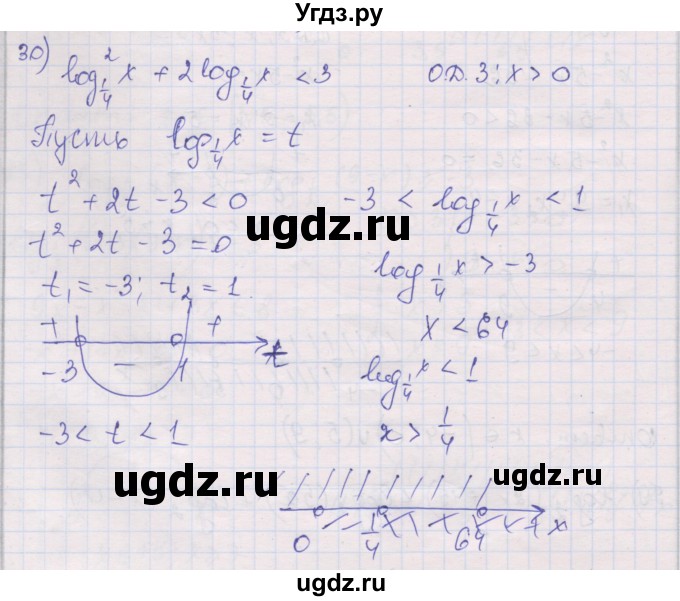 Угдз.ру
30) log²_{1/4} x + 2log_{1/4} x < 3
О.Д.З: x > 0
Пусть log_{1/4} x = t
t² + 2t - 3 < 0
t² + 2t - 3 = 0
t₁ = -3; t₂ = 1
+ +
-3 - 1 t
-3 < t < 1
-3 < log_{1/4} x < 1
log_{1/4} x > -3
x < 64
log_{1/4} x < 1
x > 1/4
0 1/4 64 x
ugdz.ru
ugdz.ru
ugdz.ru
ugdz.ru
ugdz.ru
ugdz.ru
ugdz.ru